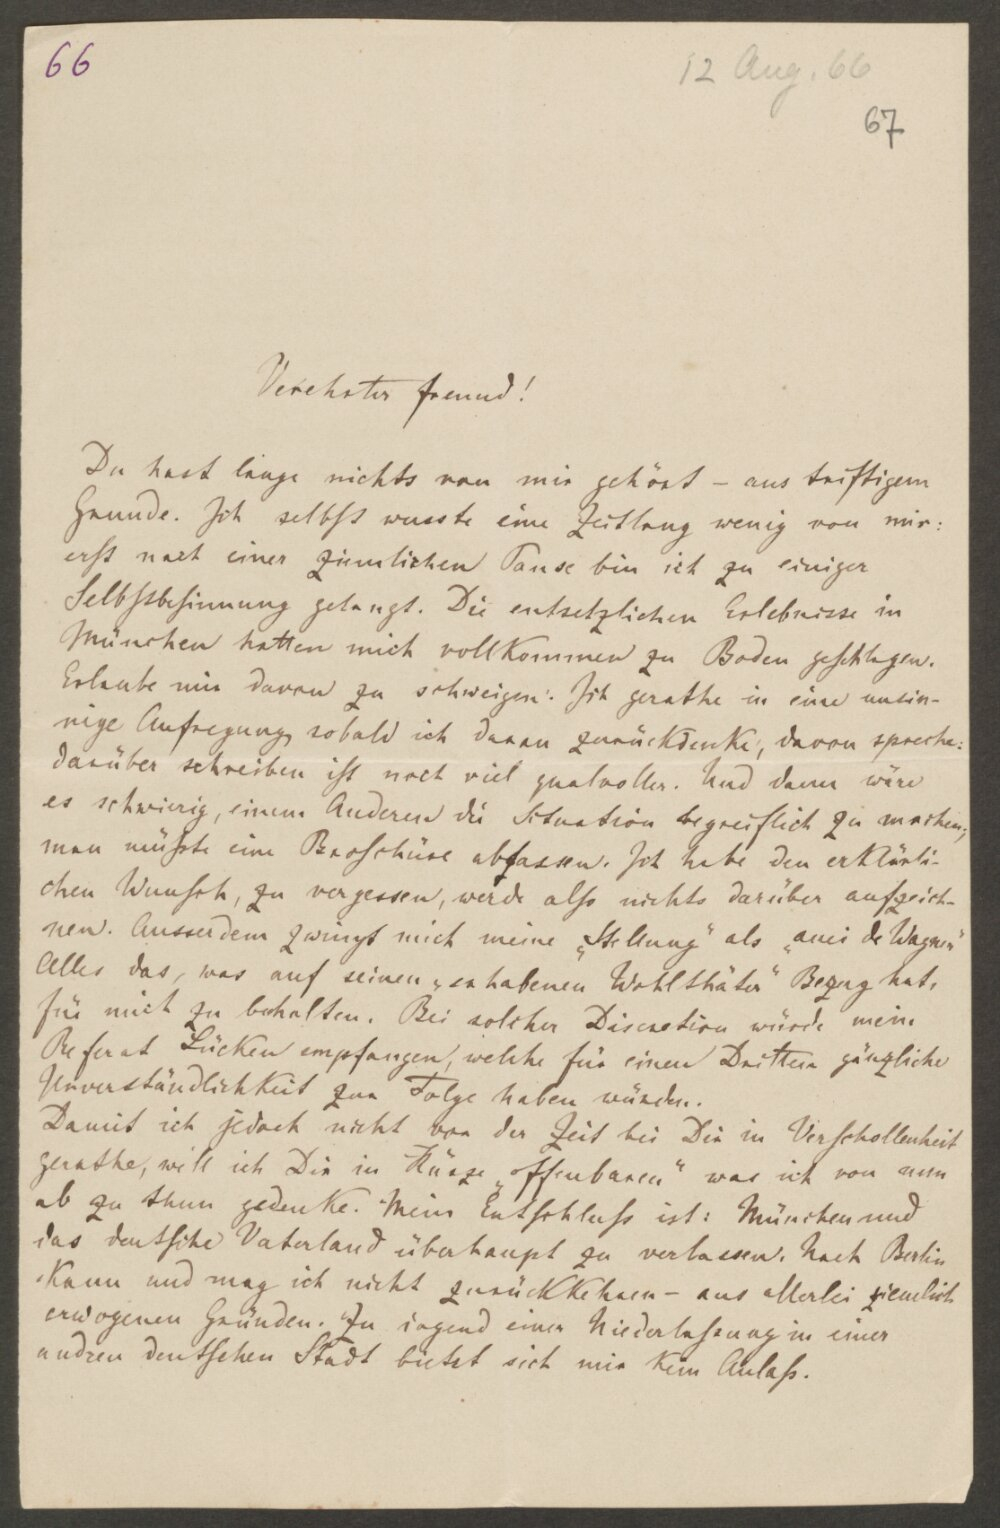 66
12 Aug. 66
67
Verehrter Freund!
Du hast lange nichts von mir gehört – aus triftigem
Grunde. Ich selbst wusste eine Zeitlang wenig von mir:
erst nach einer ziemlichen Pause bin ich zu einiger
Selbstbesinnung gelangt. Die entsetzlichen Erlebnisse in
München hatten mich vollkommen zu Boden geschlagen.
Erlaube mir davon zu schweigen. Ich gerathe in eine unsin-
nige Aufregung, sobald ich daran zurückdenke, davon spreche:
darüber schreiben ist noch viel qualvoller. Und dann wäre
es schwierig, einem Anderen die Situation begreiflich zu machen;
man müsste eine Broschüre abfassen. Ich habe den erklärli-
chen Wunsch, zu vergessen, werde also nichts darüber aufzeich-
nen. Ausserdem zwingt mich meine „Stellung“ als „ami de Wagner“
Alles das, was auf seinen „erhabenen Wohlthäter“ Bezug hat,
für mich zu behalten. Bei solcher Discretion würde mein
Referat Lücken empfangen, welche für einen Dritten gänzliche
Unverständlichkeit zur Folge haben würden.
Damit ich jedoch nicht vor der Zeit bei Dir in Verschollenheit
gerathe, will ich Dir in Kürze „offenbaren“ was ich von nun
ab zu thun gedenke. Mein Entschluss ist: München und
das deutsche Vaterland überhaupt zu verlassen. Nach Berlin
kann und mag ich nicht zurückkehren – aus allerlei ziemlich
erwogenen Gründen. Zu irgend einer Niederlassung in einer
andren deutschen Stadt bietet sich mir kein Anlass.